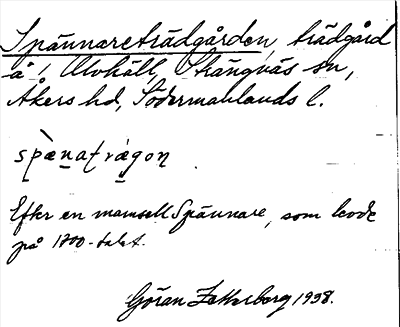 Spännareträdgården, trädgård
å Ulvhäll, Strängnäs sn,
Åkers hd, Södermanlands l.
spænatrægon
Efter en mamsell Spännare, som levde
på 1800-talet.
Göran Zetterberg 1938.